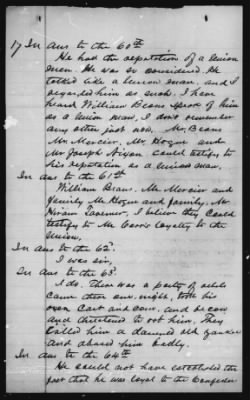 17 In Ans to the 60th
He had the reputation of a Union
man. He was so considered. He
talked like a Union man, and I
regarded him as such. I have
heard William Beans speak of him
as a Union man, I don't remember
any other just now. Mr. Beans
Mr. Mercier, Mr. Hogue and
Mr Joseph Nixon could testify to
his reputation as a Union man.
In ans to the 61st
William Beans. Mr Mercier and
family Mr Hogue and family. Mr
Hiram I believe they could
testify to Mr loyalty to the
Union,
In ans to the 62d.
I was sir,
In ans to the 63d.
I do. There was a party of rebels
came there one night, took his
own cart and corn, and bacon
and threatened to rob him. They
called him a damned old yankee
and abused him badly.
In ans to the 64th
He could not have established the
fact that he was loyal to the Confeder